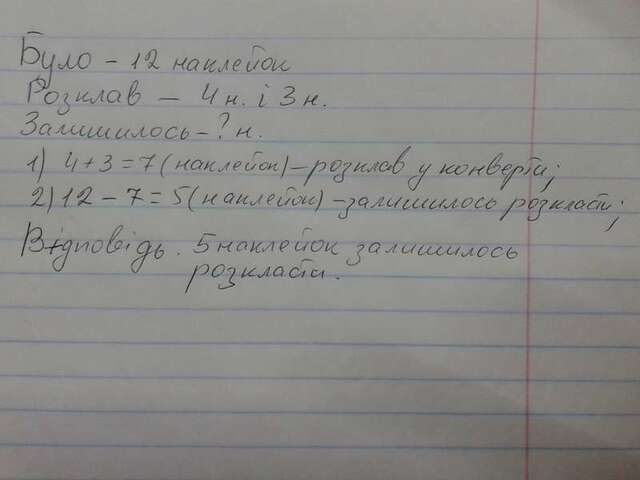 Було – 12 наклейок
Розклав – 4 н. і 3 н.
Залишилось – ? н.
1) 4 + 3 = 7 (наклейок) – розклав у конверти;
2) 12 – 7 = 5 (наклейок) – залишилось розкласти;
Відповідь. 5 наклейок залишилось
розкласти.